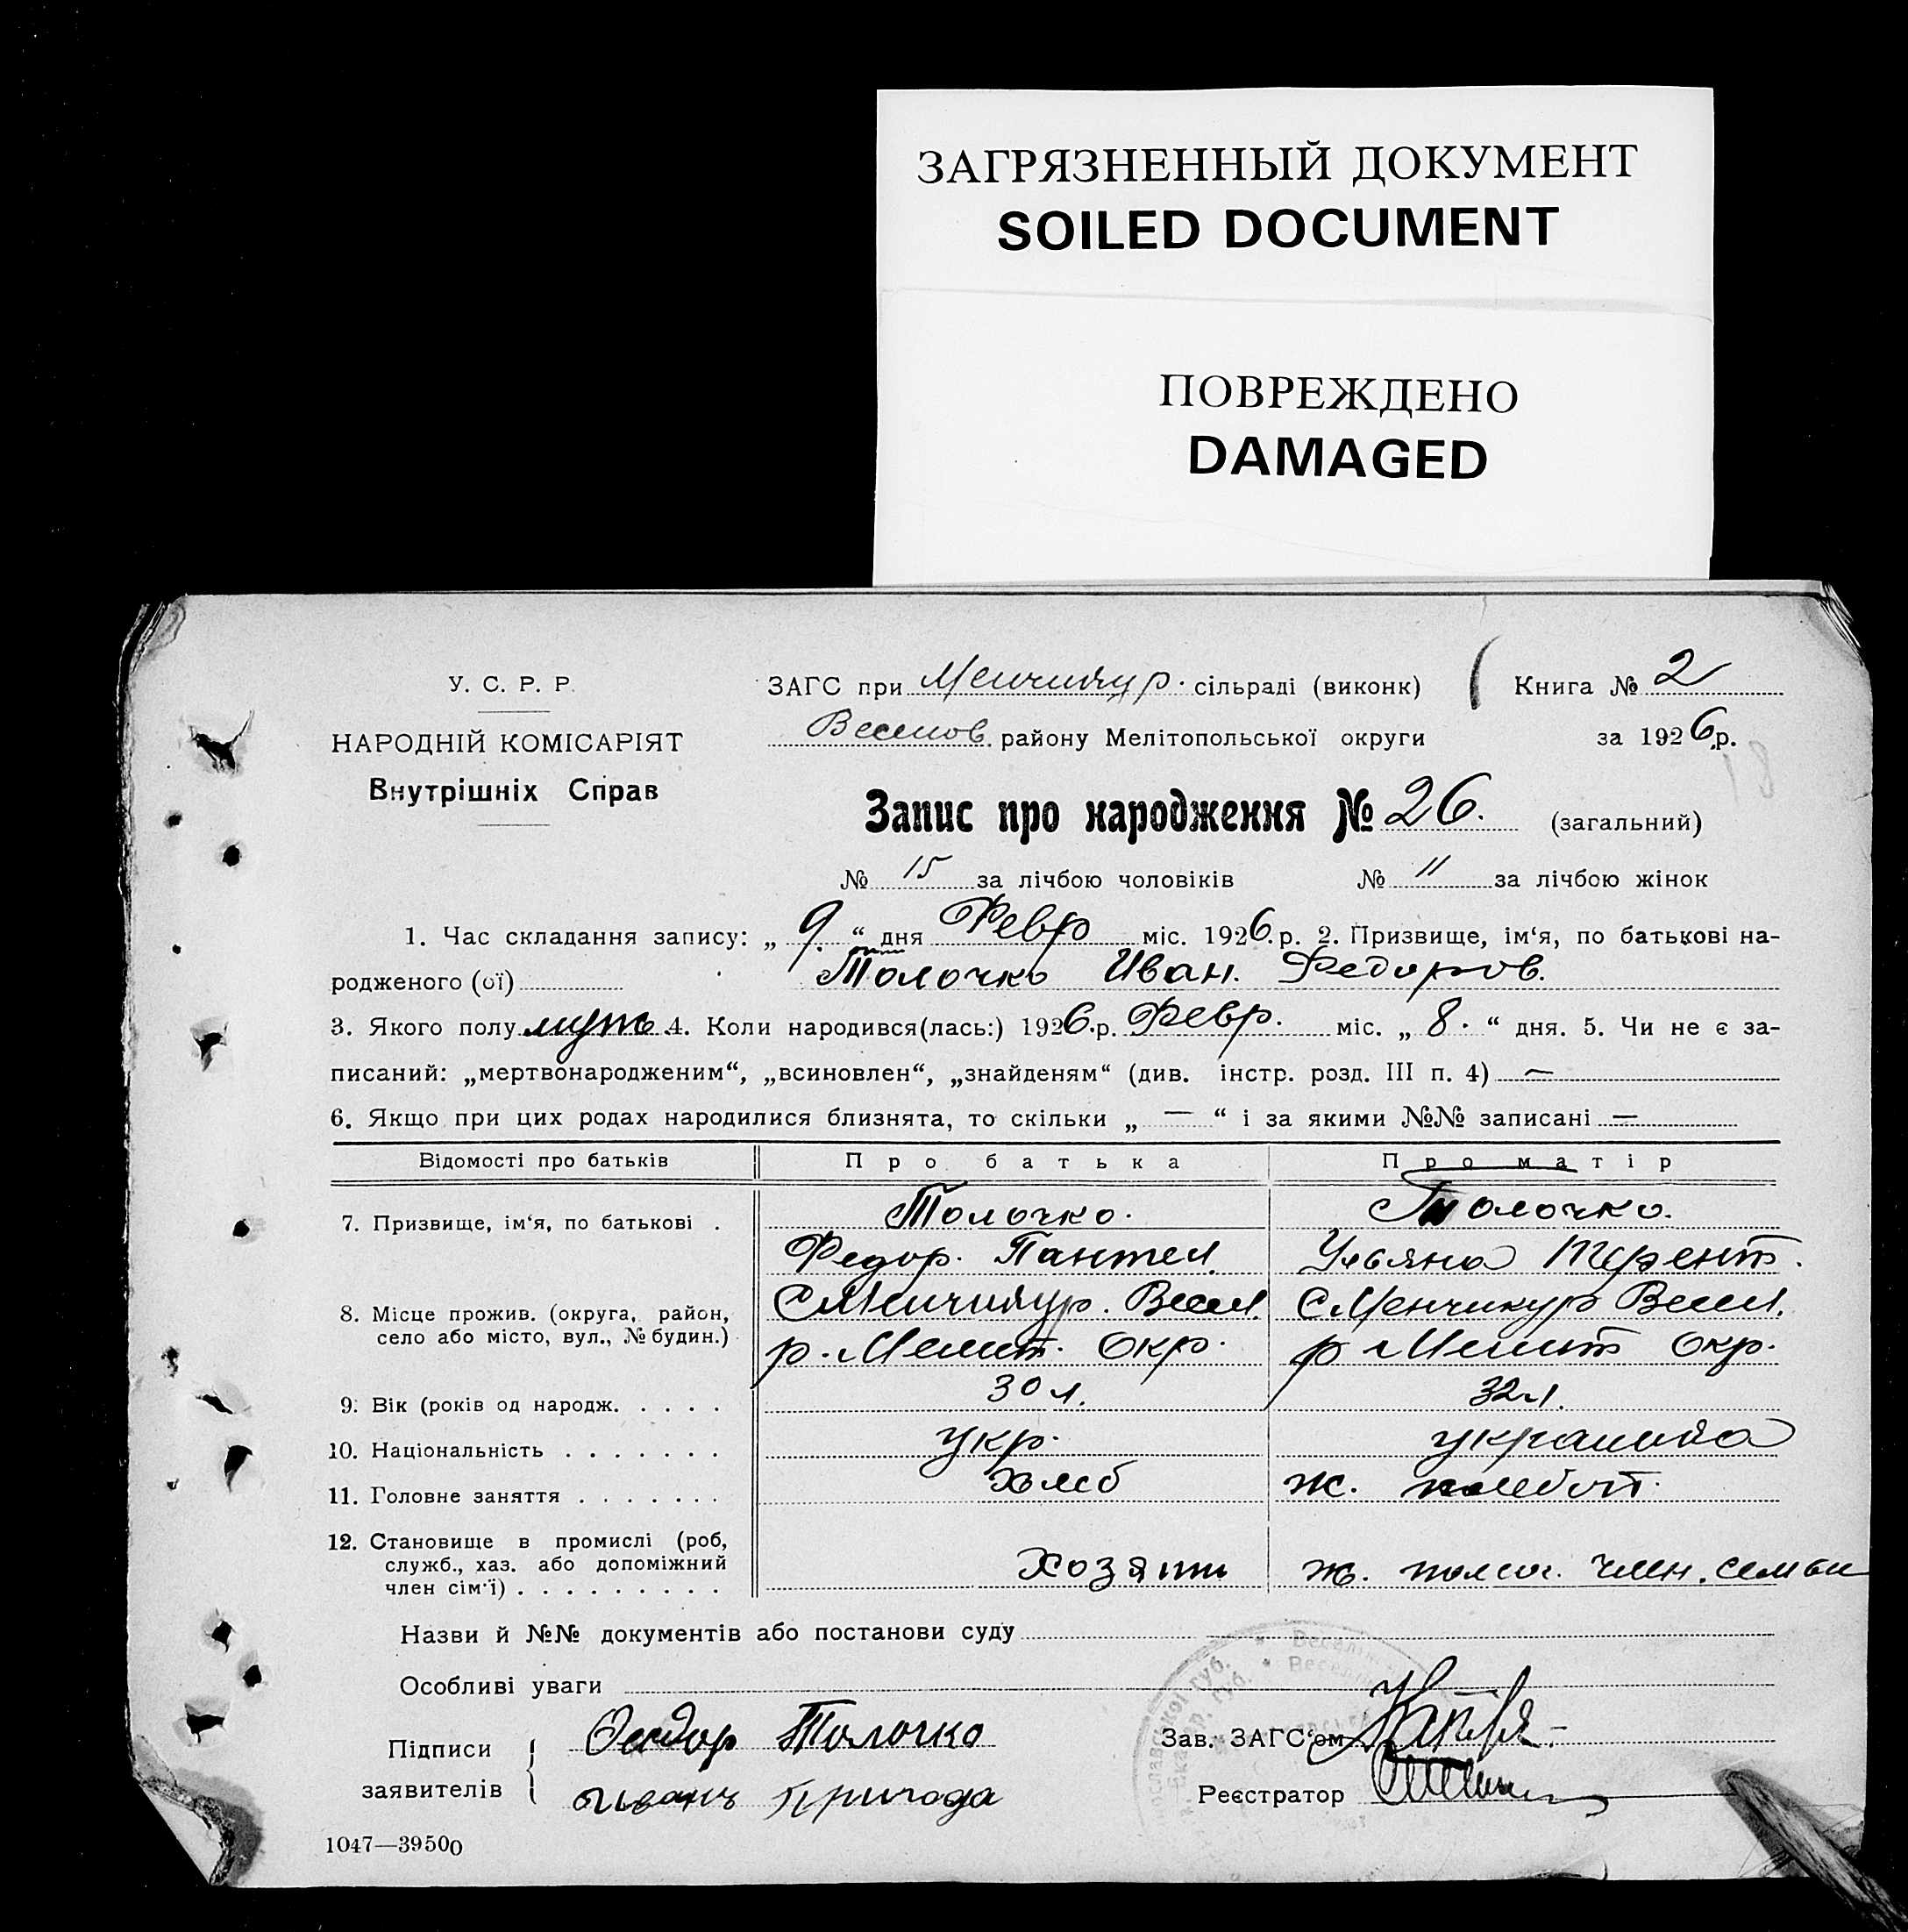 ЗАГРЯЗНЕННЫЙ ДОКУМЕНТ
SOILED DOCUMENT
ПОВРЕЖДЕНО
DAMAGED
У. С. Р. Р.
НАРОДНІЙ КОМІСАРІЯТ
Внутрішніх Справ
ЗАГС при Менчикур. сільраді (виконк)
Веселов. району Мелітопольської округи
Книга № 2
за 1926 р.
Запис про народження № 26. (загальний)
№ 15 за лічбою чоловіків № 11 за лічбою жінок
1. Час складання запису: „ 9. “ дня Февр міс. 1926. р. 2. Призвище, ім‘я, по батькові на-
родженого (ої) Толочко Иван. Федоров.
3. Якого полу муж 4. Коли народився(лась:) 1926.р. Февр. міс. „ 8. “ дня. 5. Чи не є за-
писаний: „мертвонародженим“, „всиновлен“, „знайденям“ (див. інстр. розд. III п. 4) —
6. Якщо при цих родах народилися близнята, то скільки „ — “ і за якими №№ записані —
Відомості про батьків Про батька Про матір
7. Призвище, ім‘я, по батькові . Толочко. Толочко.
Федор. Пантел. Ульяна Терент.
8. Місце прожив. (округа, район, село або місто, вул., № будин.) С Менчикур. Весел. С Менчикур Весел.
р. Мелит. Окр. р Мелит Окр.
9. Вік (років од народж. . . . . 30 л. 32 л.
10. Національність . . . . . . . укр.
11. Головне заняття . . . . . . . хлеб ж.
12. Становище в промислі (роб, служб., хаз. або допоміжний член сім‘ї) . . . . . . . . . Хозяин ж. член. семьи
Назви й №№ документів або постанови суду
Особливі уваги
Підписи заявителів { Федор Толочко
Иванъ Пригода
Зав. ЗАГС‘ом
Реєстратор
1047—39500